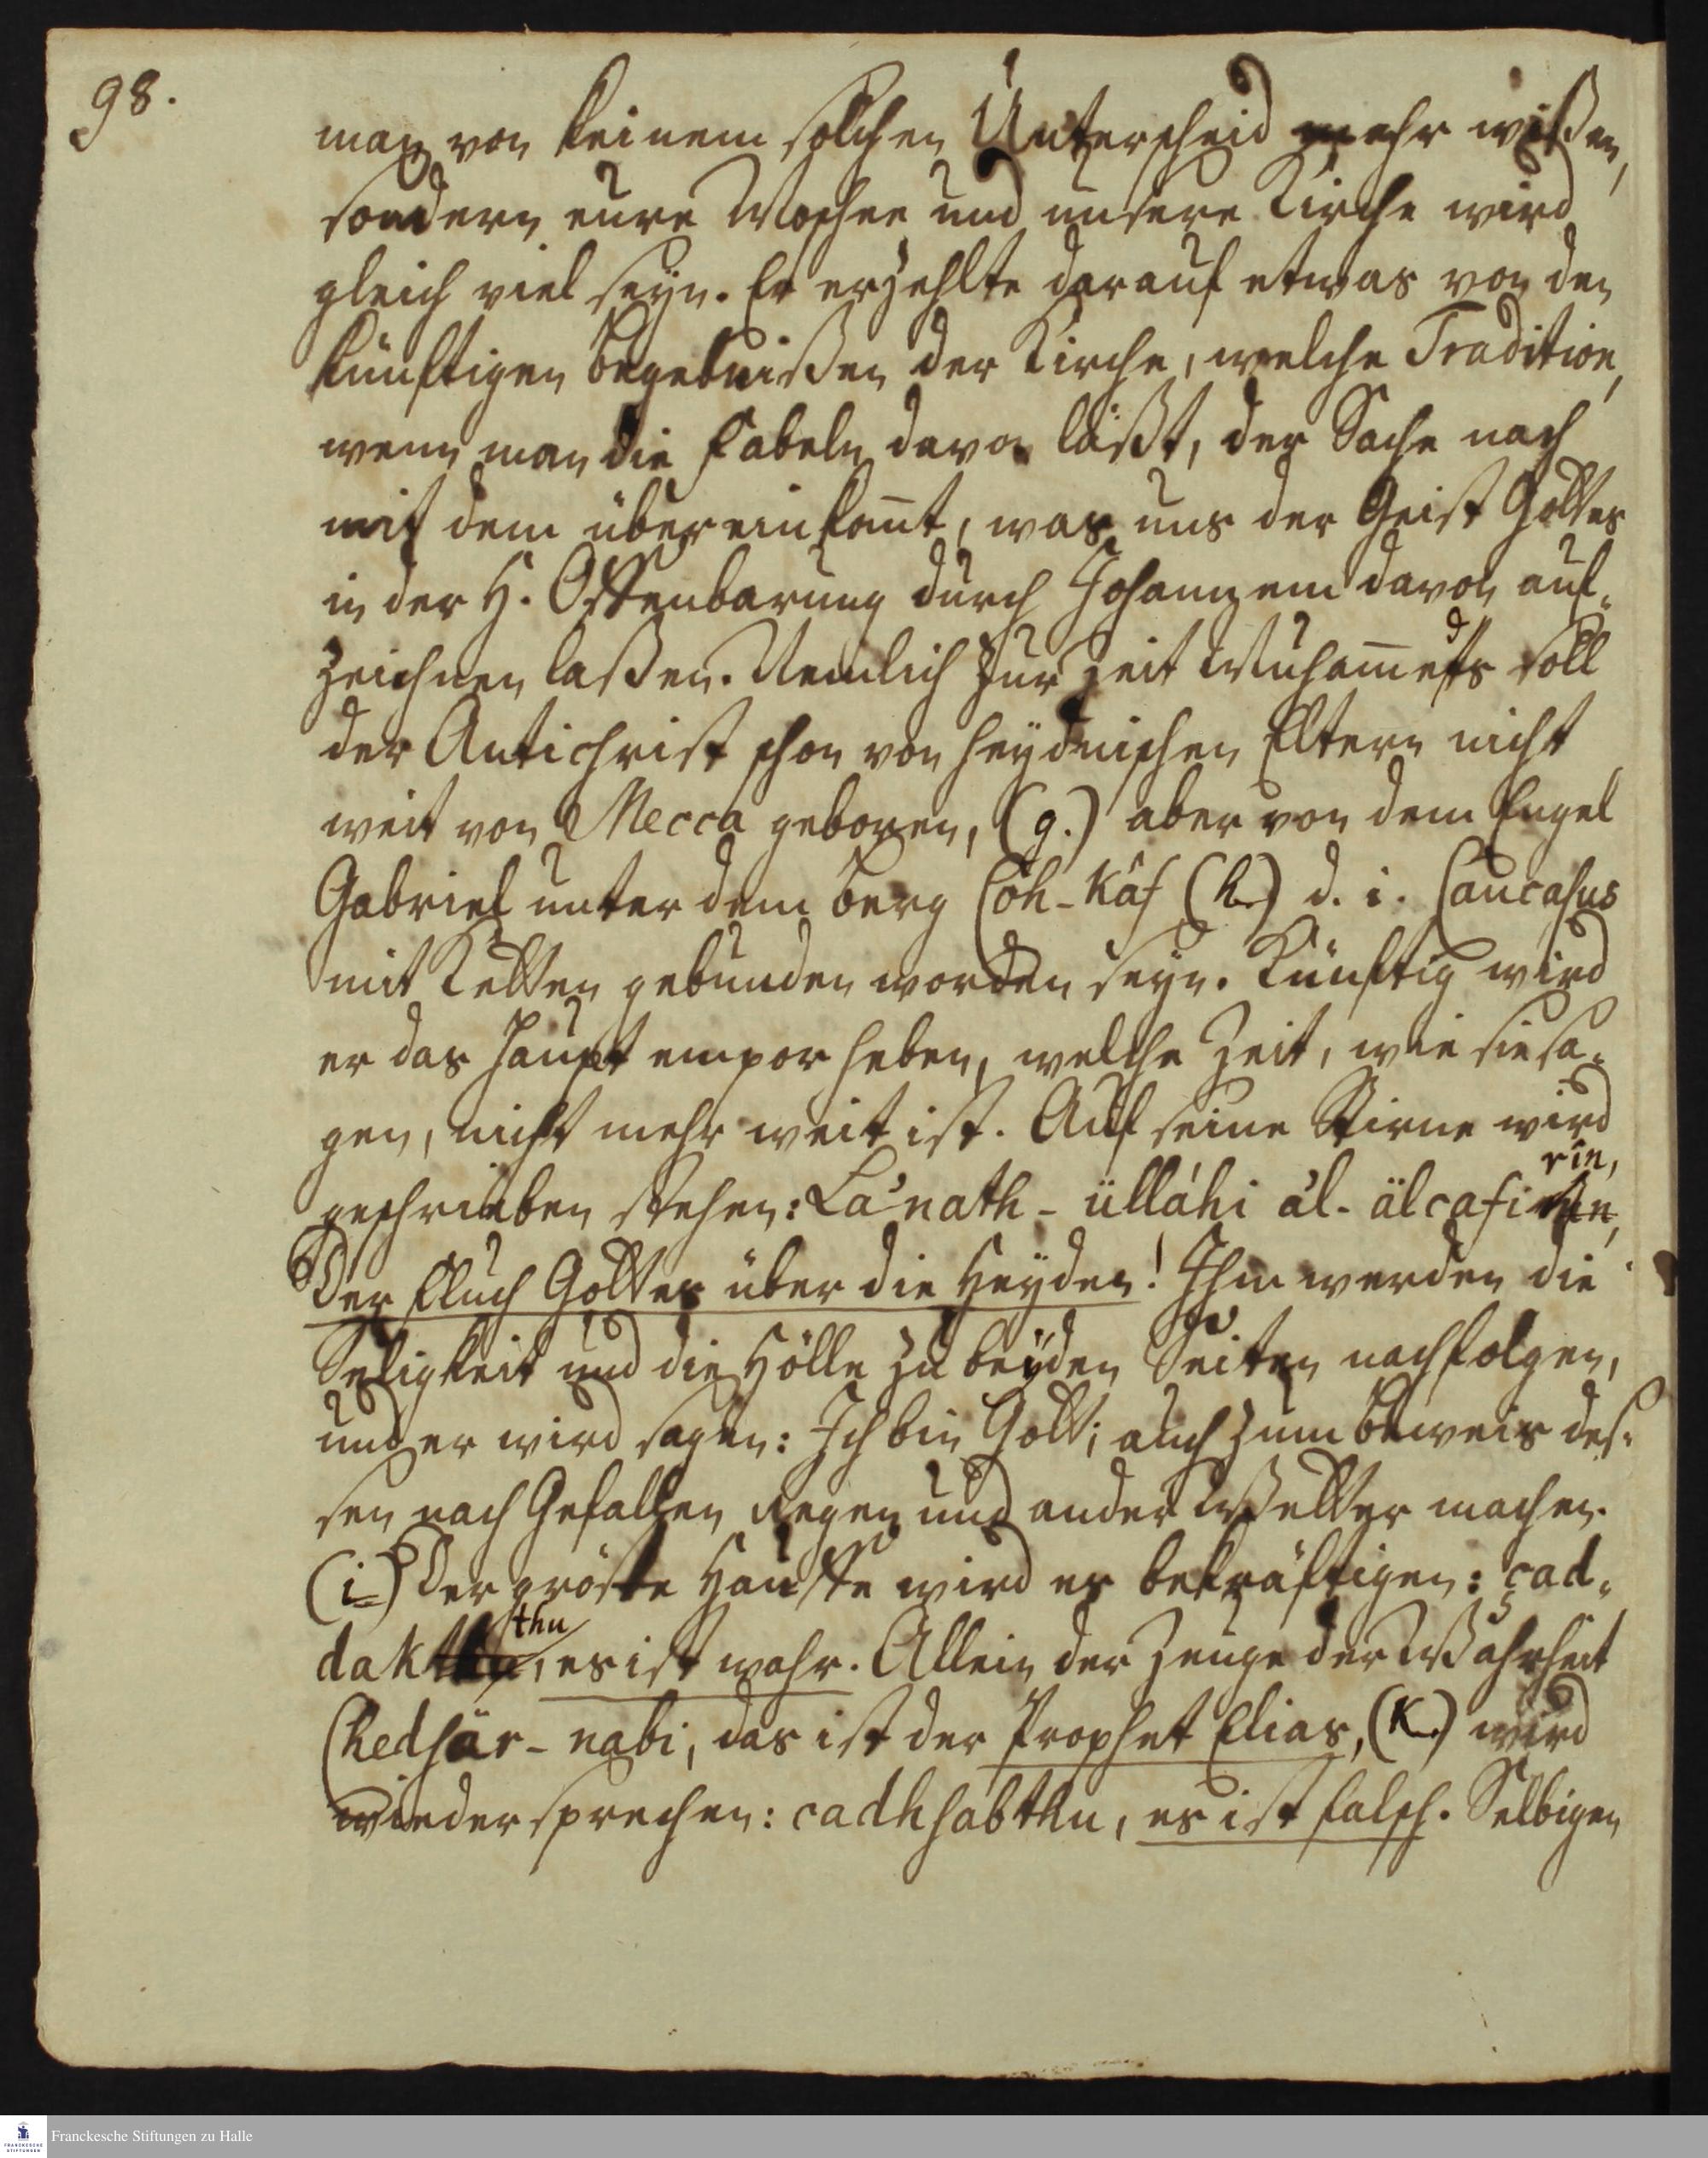 98.
man von keinem solchen Unterscheid mehr wißen,
sondern eure Moschee und unsere Kirche wird
gleich viel seyn. Er erzehlte darauf etwas von den
künftigen Begebnißen der Kirche, welche Tradition,
wenn man die Fabeln davon läßt, der Sache nach
mit dem übereinkom̄t, was uns der Geist Gottes
in der H. Offenbarung durch Johannem davon auf-
zeichnen laßen. Nemlich zur Zeit Muham̄eds soll
der Antichrist schon von heydnischen Eltern nicht
weit von Mecca geboren, (g.) aber von dem Engel
Gabriel unter dem Berg Coh-Kâf (h.) d. i. Caucasus
mit Ketten gebunden worden seyn. Künftig wird
er das Haupt empor heben, welche Zeit, wie sie sa-
gen, nicht mehr weit ist. Auf seine Stirne wird
rin,
geschrieben stehen: La'nath-üllâhi âl-älcafi
Der Fluch Gottes über die Heyden! Ihm werden die
Seligkeit und die Hölle zu beyden Seiten nachfolgen,
und er wird sagen: Ich bin Gott; auch zum Beweis des-
sen nach Gefallen Regen und ander Wetter machen.
(i.) Der gröste Hauffe wird es bekräftigen: çad-
thu
dak, es ist wahr. Allein der Zeuge der Wahrheit
Chedhär-nabi, das ist der Prophet Elias, (K.) wird
wiedersprechen: cadhhabthu, es ist falsch. Selbigen
Franckesche Stiftungen zu Halle